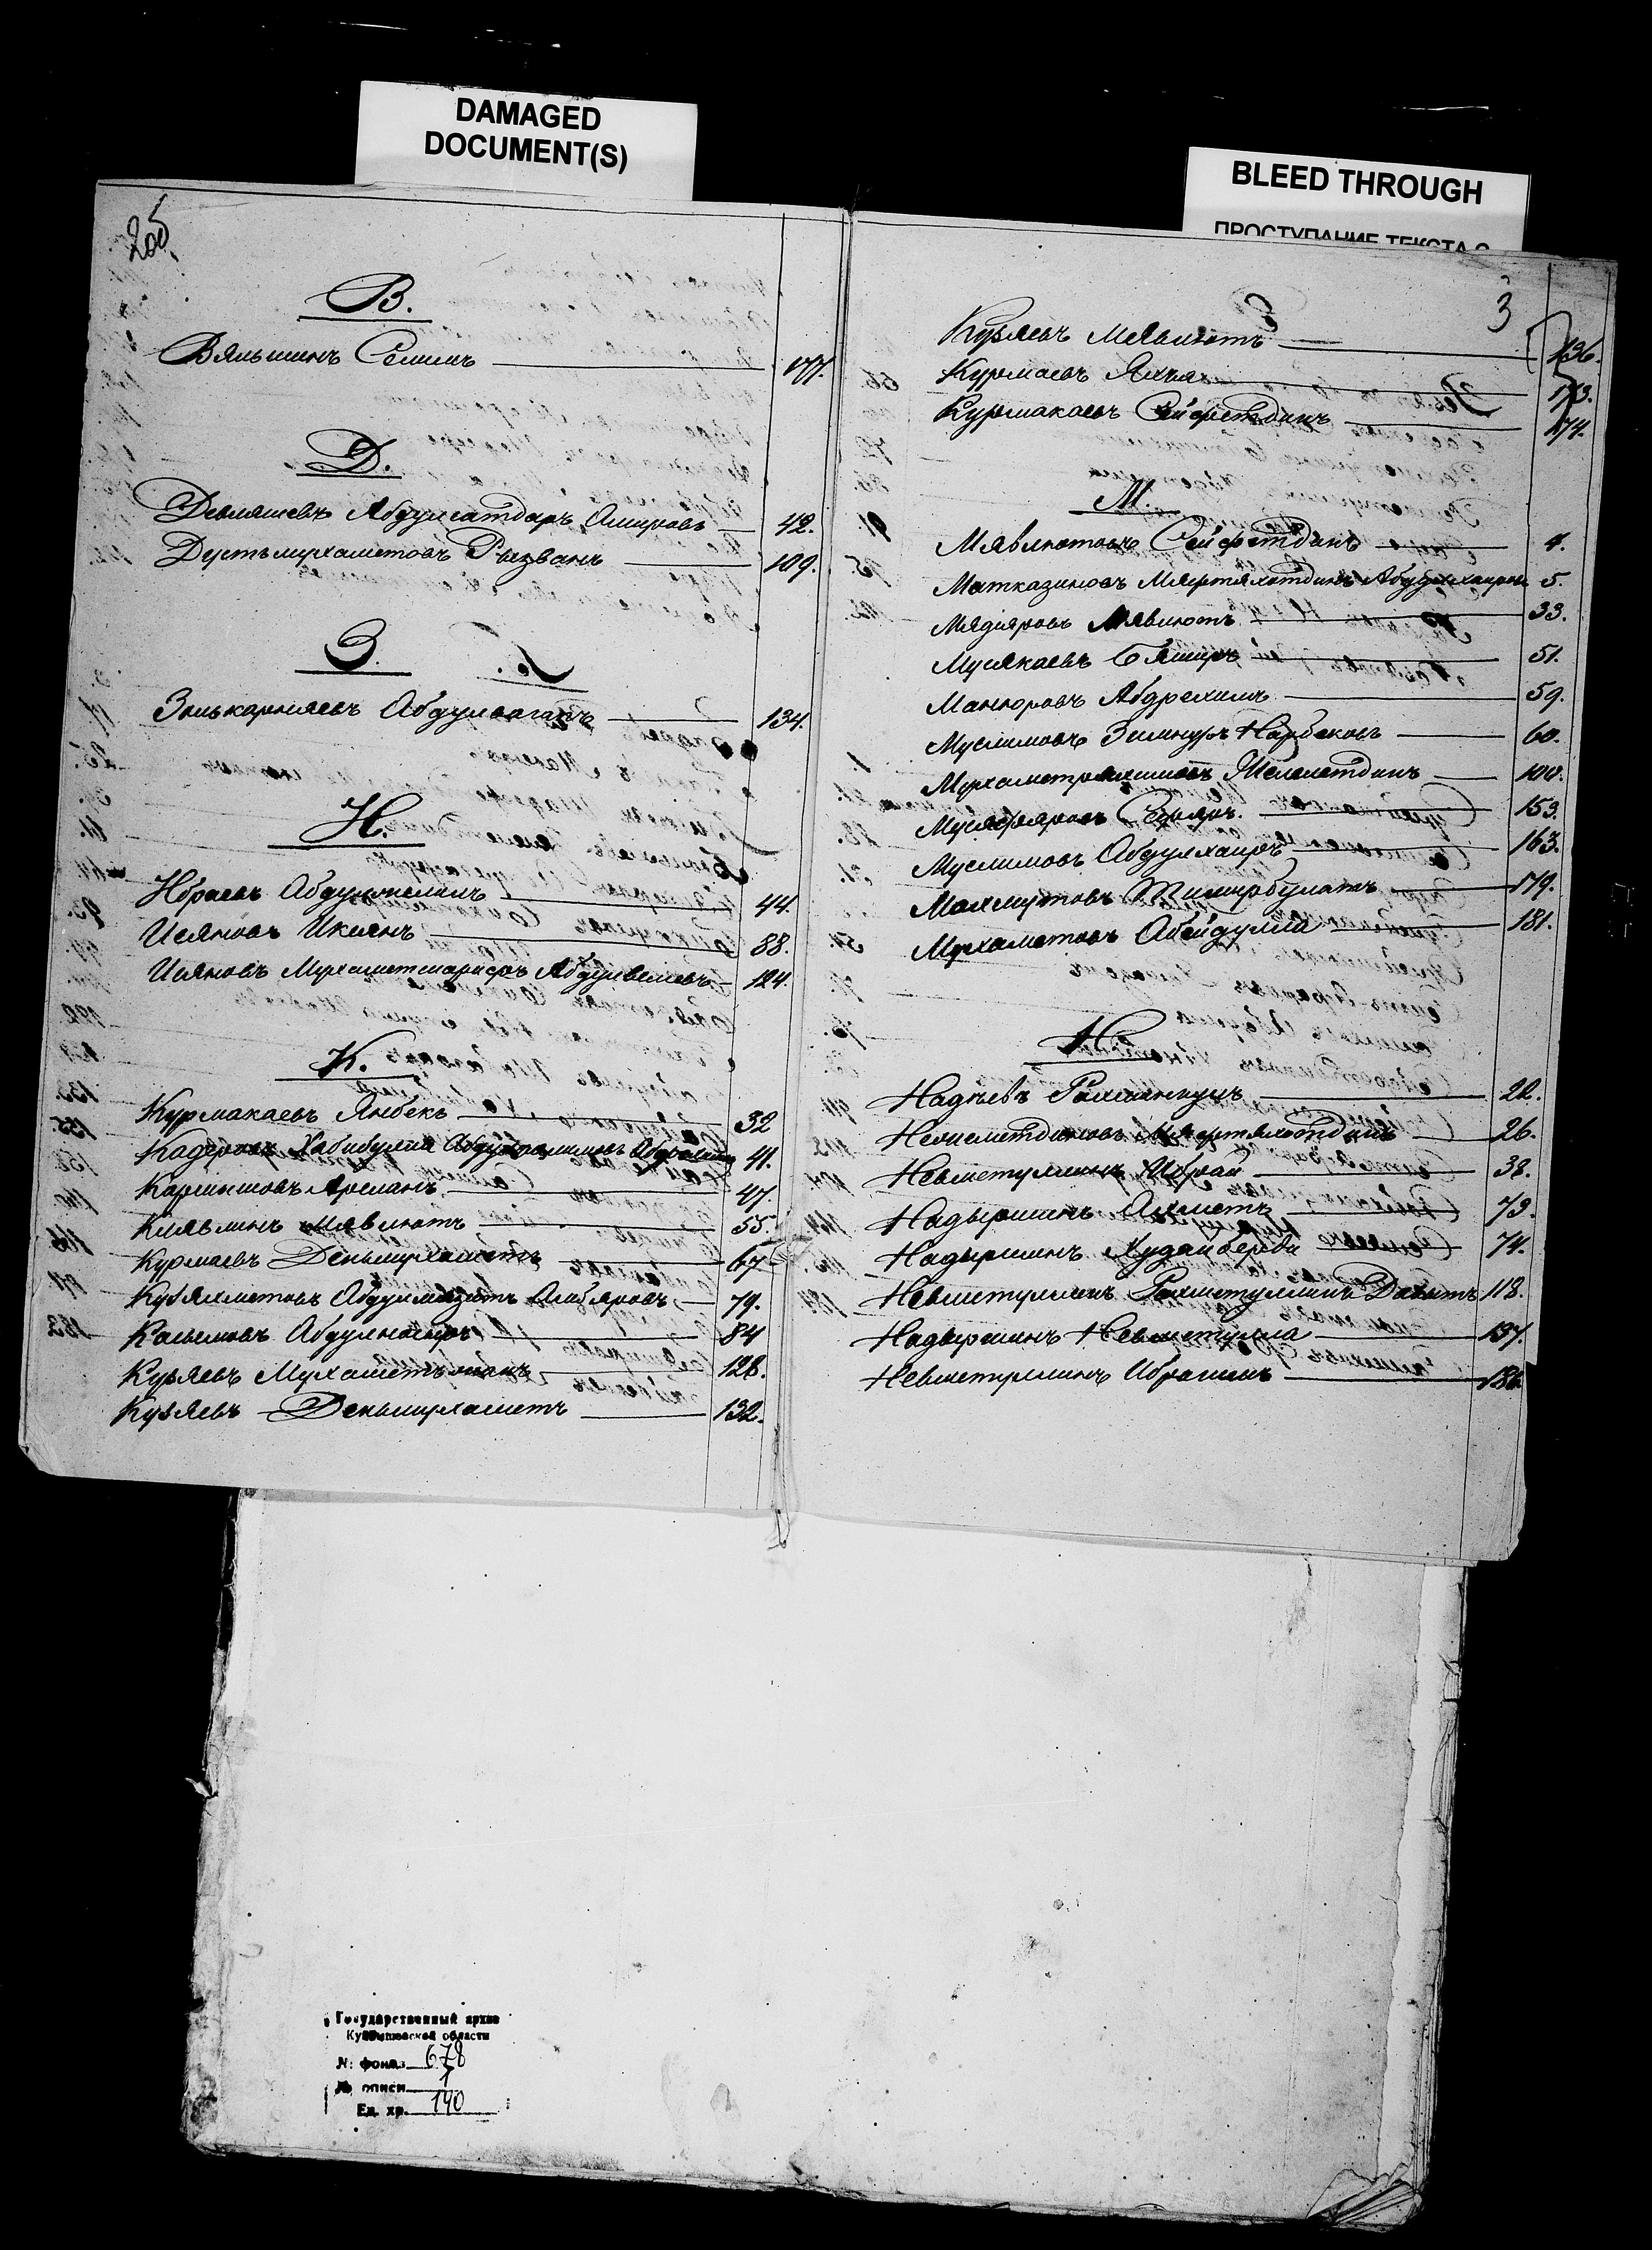 DAMAGED
DOCUMENT(S)
BLEED THROUGH
ПРОСТУПАНИЕ ТЕКСТА С
205
В.
Вяльшинъ Селимъ 177.
Д.
Девляшевъ Абдулсатдаръ Амировъ 42.
Дустьмухаметовъ Рызванъ 109.
З.
Зюлькарняевъ Абдулвагапъ 134.
И.
Ибраевъ Абдулжелилъ 44.
Исяновъ Иксянъ 88.
Исяновъ Мухаметшарифъ Абдулвелевъ 124.
К.
Курмакаевъ Янбекъ 32
Кадеровъ Хабибулла 41.
Кармышовъ Арсланъ 47.
Клявлинъ Мявлютъ 55.
Курмаевъ Деньмухаметъ 67
Кузяхметовъ Абдулмазитъ Алибяровъ 79.
Касымовъ Абдулнасыръ 84
Кузяевъ Мухаметьжанъ 128.
Кузяевъ Деньмухаметъ 132.
3
Кузяевъ Мявлютъ 136.
Курмаевъ Яхъя 173.
Курмакаевъ Сейфетдинъ 174.
М.
Мявлютовъ Сейфетдинъ 4.
Матказиновъ Мифтяхотдинъ Абдулхаировъ 5.
Мядияровъ Мявлютъ 33.
Мусякаевъ Бяширъ 51.
Манюровъ Абдрехимъ 59.
Муслимовъ Зелинуръ Нарбековъ 60.
Мухаметрахимовъ Желелетдинъ 100.
Мусяфяровъ 153.
Муслимовъ Абдулхаиръ 163.
Махмутовъ Тимирбулатъ 179.
Мухаметовъ Абейдулла 181.
Н.
Надѣевъ Рахманкулъ 22.
Незаметдиновъ Мифтяхотдинъ 26.
Невметуллинъ Ибрай 38.
Надыршинъ Ахметъ 73.
Надыршинъ Худайберди 74.
Невметуллинъ Рахметуллинъ Давытъ 118.
Надыршинъ Невметулла 137.
Невметуллинъ Ибрагимъ 186.
Государственный архив
Куйбышевской области
№ фонда 678
№ описи 1
Ед. хр. 140